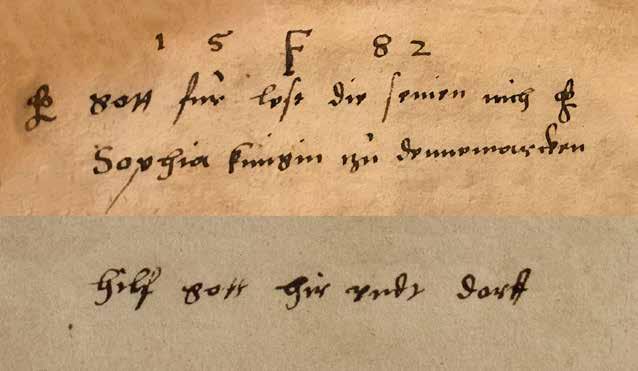 1 5 F 8 2
gott für lest die seinen nich
Sophia küngin zů dennemarcken
hilf gott hir vndt dortt